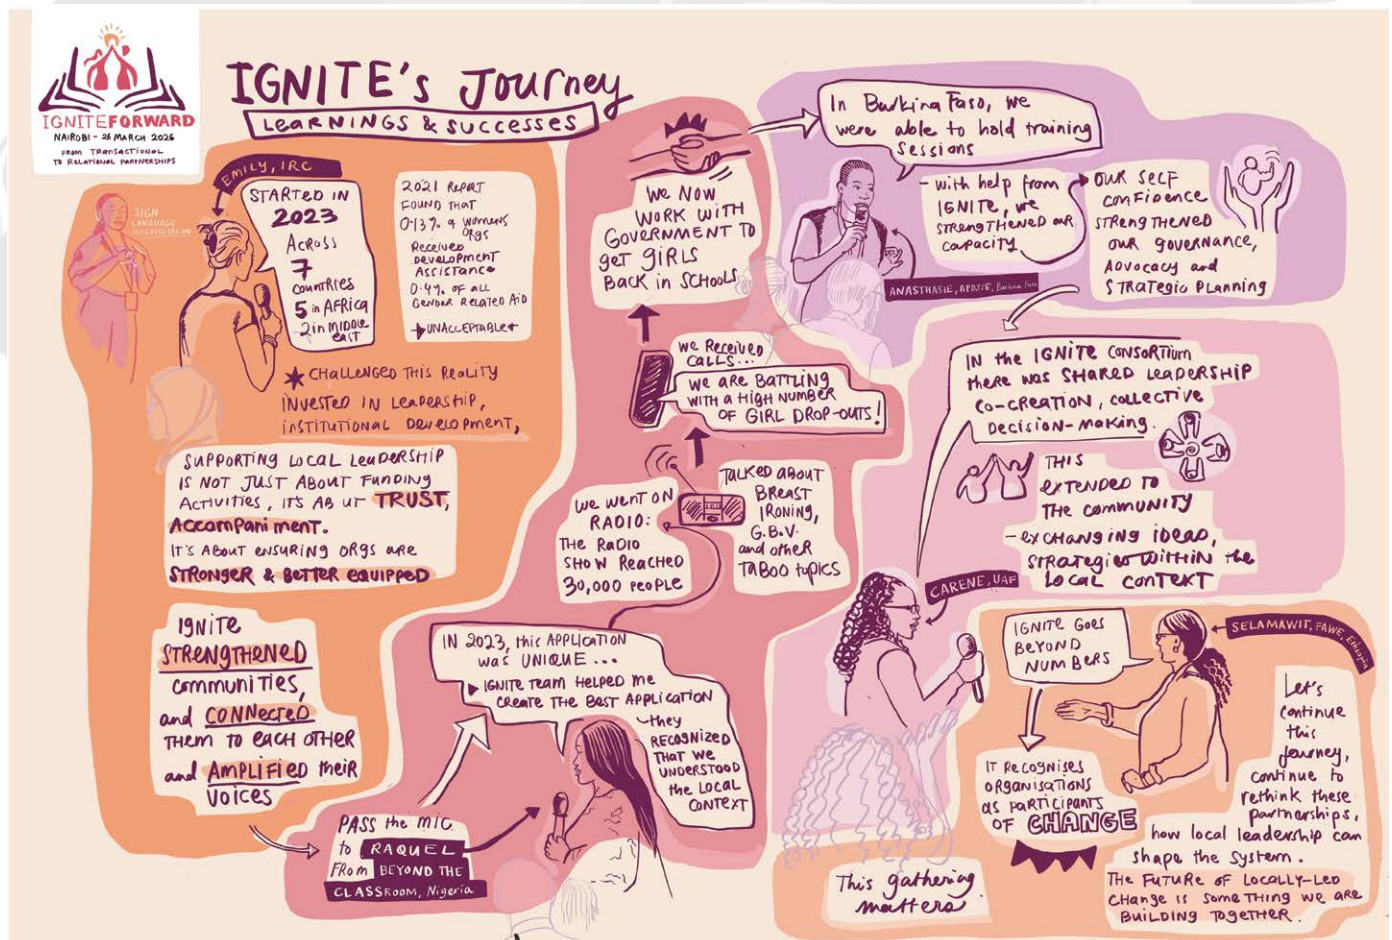 IGNITEFORWARD
NAIROBI - 26 MARCH 2026
FROM TRANSACTIONAL
TO RELATIONAL PARTNERSHIPS
IGNITE's Journey
LEARNINGS & SUCCESSES
EMILY, IRC
SIGN
LANGUAGE
INTERPRETATION
STARTED IN
2023
ACROSS
7
COUNTRIES
5 in AFRICA
2 in MIDDLE
EAST
2021 REPORT
FOUND THAT
0.13% of WOMENS
ORGS
RECEIVED
DEVELOPMENT
ASSISTANCE
0.4% OF ALL
GENDER RELATED AID
UNACCEPTABLE
CHALLENGED THIS REALITY
INVESTED IN LEADERSHIP,
INSTITUTIONAL DEVELOPMENT,
SUPPORTING LOCAL LEADERSHIP
IS NOT JUST ABOUT FUNDING
ACTIVITIES, IT'S AB UT TRUST,
ACCOMPANIMENT.
IT'S ABOUT ENSURING ORGS ARE
STRONGER & BETTER EQUIPPED
IGNITE
STRENGTHENED
COMMUNITIES,
and CONNECTED
THEM TO EACH OTHER
and AMPLIFIED their
VOICES
PASS the MIC
to RAQUEL
FROM BEYOND THE
CLASSROOM, Nigeria
IN 2023, this APPLICATION
was UNIQUE ...
IGNITE TEAM HELPED me
CREATE THE BEST APPLICATION
- they
RECOGNIZED
THAT WE
UNDERSTOOD
the LOCAL
CONTEXT
we went on
RADIO:
THE RADIO
SHOW REACHED
30,000 PEOPLE
TALKED ABOUT
BREAST
IRONING,
G.B.V.
and other
TABOO topics
we Received
CALLS...
WE ARE BATTLING
WITH A HIGH NUMBER
OF GIRL DROP-OUTS!
WE NOW
WORK WITH
GOVERNMENT TO
get GIRLS
BACK in SCHOOLS
In Burkina Faso, we
were able to hold training
sessions
- with help from
IGNITE, we
STRENGTHENED our
capacity
ANASTHASIE, APDJTE, Burkina Faso
OUR SELF
CONFIDENCE
STRENGTHENED
our governance,
ADVOCACY and
STRATEGIC PLANNING
IN the IGNITE CONSORTIUM
there was SHARED LEADERSHIP
CO-CREATION, COLLECTIVE
DECISION-MAKING.
THIS
extended to
THE COMMUNITY
- exCHANGING IDEAS,
STRATEGIES WITHIN the
LOCAL CONTEXT
CARENE, UAF
IGNITE GOES
BEYOND
NUMBERS
SELAMAWIT, FAWE, Ethiopia
IT RECOGNISES
ORGANISATIONS
AS PARTICIPANTS
OF CHANGE
This gathering
matters
Let's
continue
this
journey,
continue to
rethink these
partnerships,
how local leadership can
shape the system.
THE FUTURE OF LOCALLY-LED
CHANGE IS SOMETHING WE ARE
BUILDING TOGETHER.